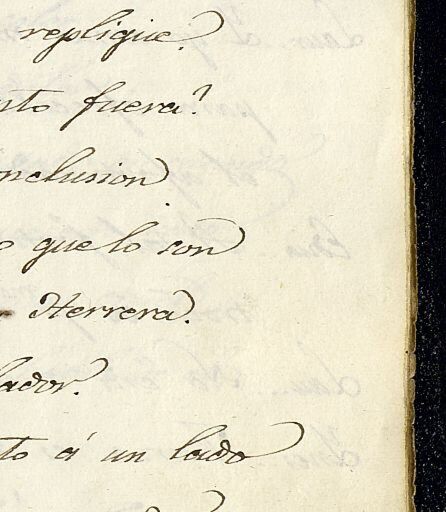 replique?
nto fuera?
nclusion
o que lo son
Herrera.
ador.
to á un lado